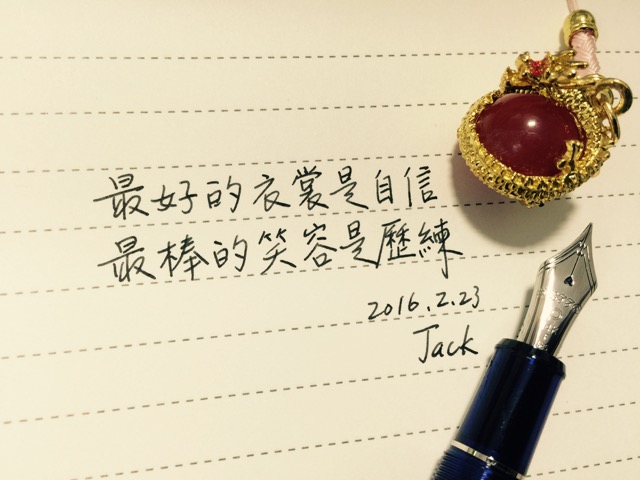 最好的衣裳是自信
最棒的笑容是歷練
2016.2.23
Jack